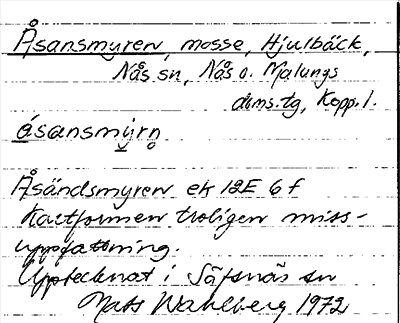 Åsansmyren, mosse, Hjulbäck,
Nås sn, Nås o. Malungs
doms.tg, Kopp.l.
åsansmyrn
Åsändsmyren ek 12E 6f
Kartformen troligen miss-
uppfattning.
Upptecknat i Säfsnäs sn
Mats Wahlberg 1972